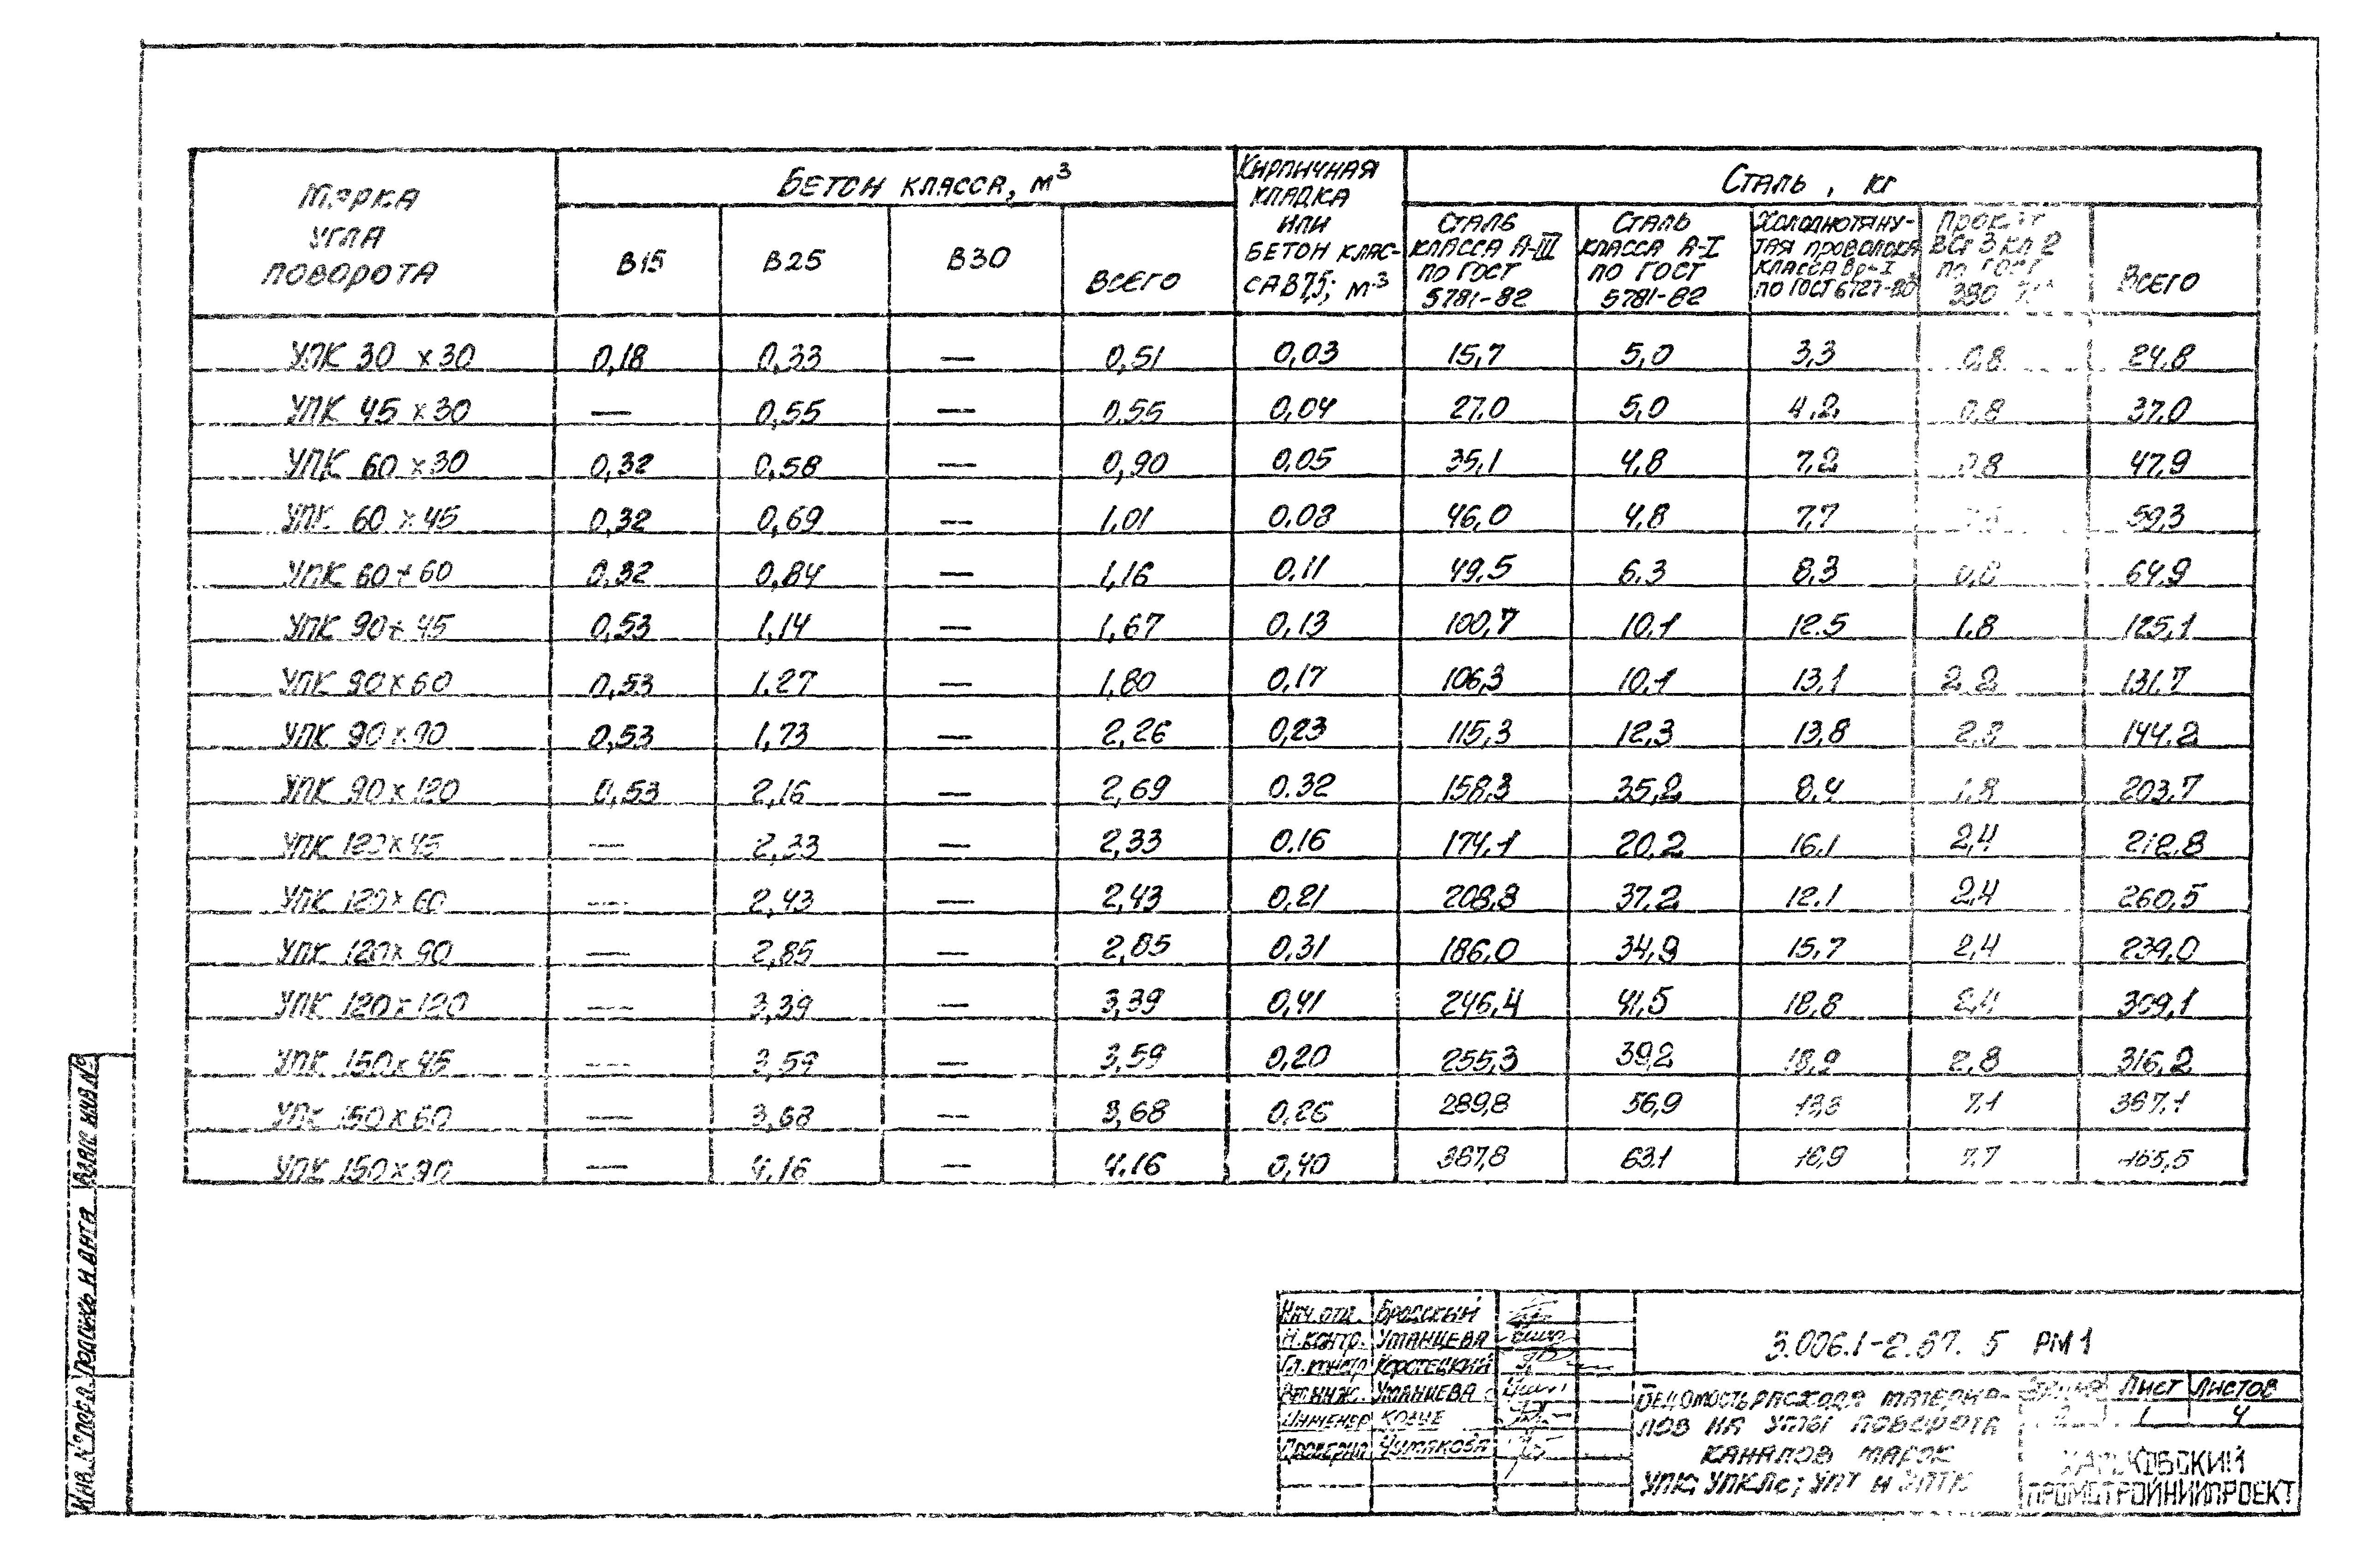 Марка угла поворота | Бетон класса, м³ | Кирпичная кладка или бетон класса В7,5; м³ | Сталь, кг
В15 | В25 | В30 | Всего | Сталь класса А-III по ГОСТ 5781-82 | Сталь класса А-I по ГОСТ 5781-82 | Холоднотянутая проволока класса Вр-I по ГОСТ 6727-80 | Прокат ВСт 3 кп 2 по ГОСТ 380 | Всего
УПК 30 х 30 | 0,18 | 0,33 | — | 0,51 | 0,03 | 15,7 | 5,0 | 3,3 | 0,8 | 24,8
УПК 45 х 30 | — | 0,55 | — | 0,55 | 0,04 | 27,0 | 5,0 | 4,2 | 0,8 | 37,0
УПК 60 х 30 | 0,32 | 0,58 | — | 0,90 | 0,05 | 35,1 | 4,8 | 7,2 | 0,8 | 47,9
УПК 60 х 45 | 0,32 | 0,69 | — | 1,01 | 0,08 | 46,0 | 4,8 | 7,7 | | 59,3
УПК 60 х 60 | 0,32 | 0,84 | — | 1,16 | 0,11 | 49,5 | 6,3 | 8,3 | 0,8 | 64,9
УПК 90 х 45 | 0,53 | 1,14 | — | 1,67 | 0,13 | 100,7 | 10,1 | 12,5 | 1,8 | 125,1
УПК 90 х 60 | 0,53 | 1,27 | — | 1,80 | 0,17 | 106,3 | 10,1 | 13,1 | 2,2 | 131,7
УПК 90 х 90 | 0,53 | 1,73 | — | 2,26 | 0,23 | 115,3 | 12,3 | 13,8 | 2,8 | 144,2
УПК 90 х 120 | 0,53 | 2,16 | — | 2,69 | 0,32 | 158,3 | 35,2 | 8,4 | 1,8 | 203,7
УПК 120 х 45 | — | 2,33 | — | 2,33 | 0,16 | 174,1 | 20,2 | 16,1 | 2,4 | 212,8
УПК 120 х 60 | — | 2,43 | — | 2,43 | 0,21 | 208,8 | 37,2 | 12,1 | 2,4 | 260,5
УПК 120 х 90 | — | 2,85 | — | 2,85 | 0,31 | 186,0 | 34,9 | 15,7 | 2,4 | 239,0
УПК 120 х 120 | — | 3,39 | — | 3,39 | 0,41 | 246,4 | 41,5 | 18,8 | 2,4 | 309,1
УПК 150 х 45 | — | 3,59 | — | 3,59 | 0,20 | 255,3 | 39,2 | 18,9 | 2,8 | 316,2
УПК 150 х 60 | — | 3,68 | — | 3,68 | 0,26 | 289,8 | 56,9 | 13,3 | 7,1 | 367,1
УПК 150 х 90 | — | 4,16 | — | 4,16 | 0,40 | 367,8 | 63,1 | 16,9 | 7,7 |
Взам. инв. №
Подпись и дата
Инв. № подл.
Нач. отд. Бродский
Н. контр. Уманцева
Гл. констр. Коротецкий
Вед. инж. Уманцева
Инженер
Проверил Чумакова
3.006.1-2.87. 5 РМ1
Ведомость расхода материа-
лов на углы поворота
каналов марок
УПК; УПКЛс; УПТ и УПТК
Стадия Лист Листов
1 4
Харьковский
ПРОМСТРОЙНИИПРОЕКТ